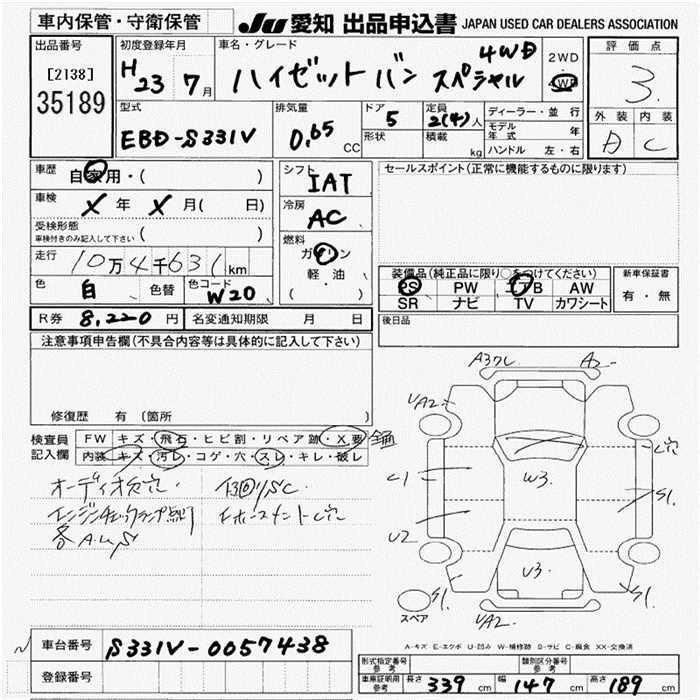 車内保管・守衛保管
JU 愛知 出品申込書 JAPAN USED CAR DEALERS ASSOCIATION
出品番号
[2138]
35189
初度登録年月
H23 7月
車名・グレード
ハイゼットバン スペシャル 4WD
2WD
4WD
評価点
3
外装 内装
D C
型式
EBD-S331V
排気量
0.65 CC
ドア
5
形状
定員
2(4)人
積載
kg
ディーラー・並行
モデル年式 年
ハンドル 左・右
車歴
自家用・( )
車検
X 年 X 月( 日)
受検形態
車検付きのみ記入して下さい ( )
走行
10万4千631 km
色
白
色替
色コード
W20
シフト
IAT
冷房
AC
燃料
ガソリン
軽油
( )
セールスポイント(正常に機能するものに限ります)
装備品(純正品に限り○をつけてください)
PS PW エアB AW
SR ナビ TV カワシート
新車保証書
有・無
後日品
R券 8,220 円 名変通知期限 月 日
注意事項申告欄(不具合内容等は具体的に記入して下さい)
修復歴 有 (箇所 )
検査員
記入欄
FW キズ・飛石・ヒビ割・リペア跡・X要
内装 キズ・汚レ・コゲ・穴・スレ・キレ・破レ
オーディオ欠穴
エンジンチェックランプ点灯
各A.U.S
A3クレ
A2
UA2
ビ穴
C1
W3
S1
U2
U3
S1
S1
UA2
スペア
A-キズ E-エクボ U-凹み W-補修跡 S-サビ C-腐食 XX-交換済
車台番号 S331V-0057438
登録番号
形式指定番号 参考
類別区分番号 参考
車庫証明用 参考 長さ 339 cm 幅 147 cm 高さ 189 cm